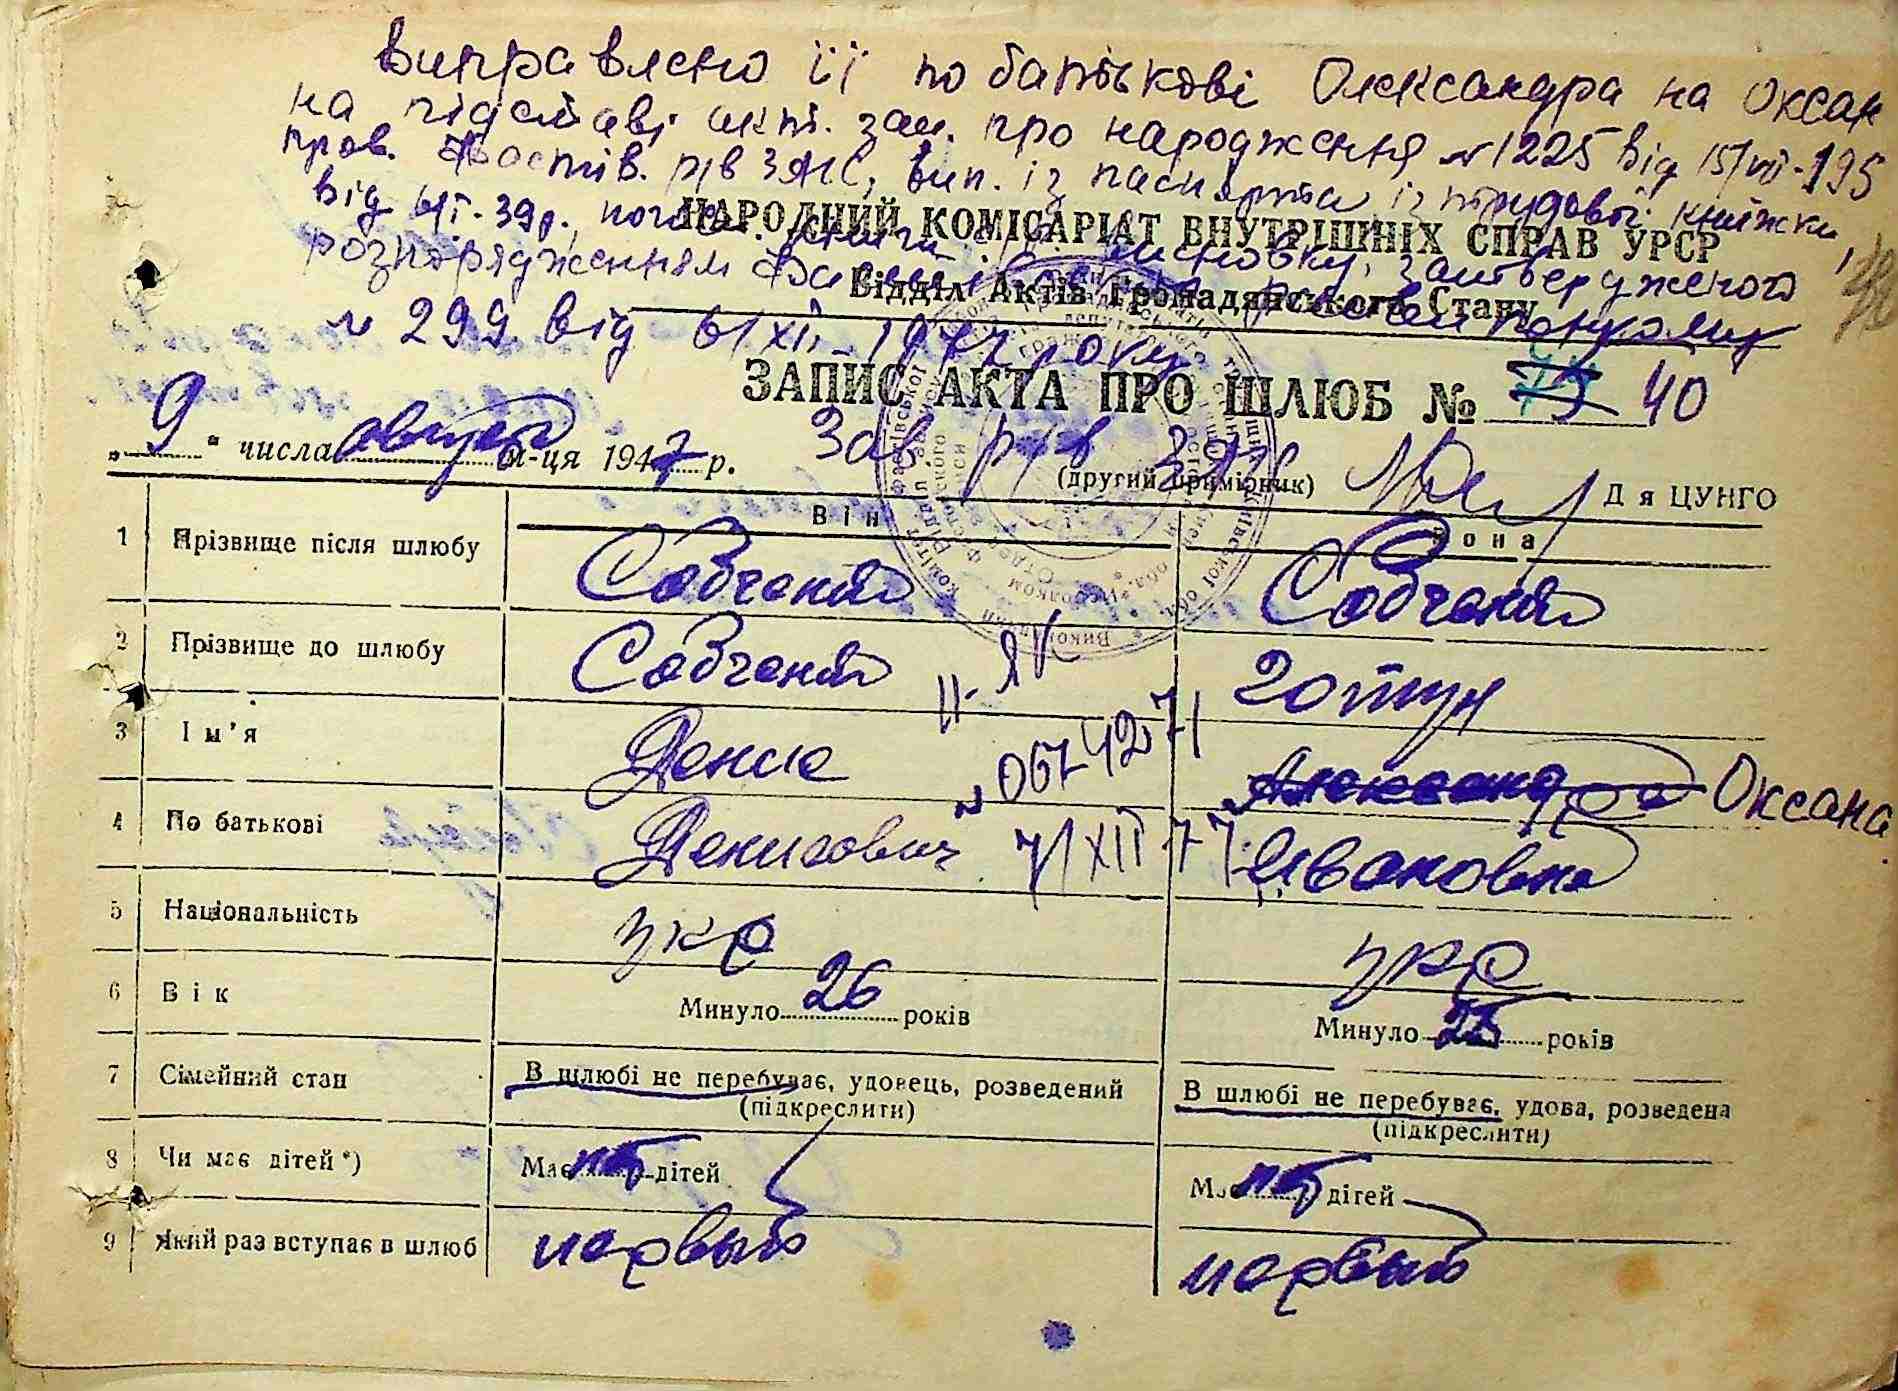 виправлено її по батькові Олександра на Оксан
на підставі акт. зап. про народження №1225 від 15/VII-195
пров. Фастів. р/в ЗАГС, вип. із паспорта, із трудової книжки,
від 6/I-39р., висновку, затвердженого
розпорядженням
№ 299 від 6/XII 1977 року
НАРОДНИЙ КОМІСАРІАТ ВНУТРІШНІХ СПРАВ УРСР
Відділ Актів Громадянського Стану
ЗАПИС АКТА ПРО ШЛЮБ № 40
„ 9 “ числа август м-ця 1947 р.
Зав р/в ЗАГС
(другий примірник)
Д я ЦУНГО
Він
Вона
1 Прізвище після шлюбу Савченко Савченко
2 Прізвище до шлюбу Савченко Готун
II-ЯК
№ 0674271
7/XII 77
3 Ім’я Денис Александра Оксана
4 По батькові Денисович Ивановна
5 Національність укр укр
6 Вік Минуло 26 років Минуло 25 років
7 Сімейний стан В шлюбі не перебуває, удовець, розведений В шлюбі не перебуває, удова, розведена
(підкреслити) (підкреслити)
8 Чи має дітей*) Має нет дітей Має нет дітей
9 Який раз вступає в шлюб первый первый